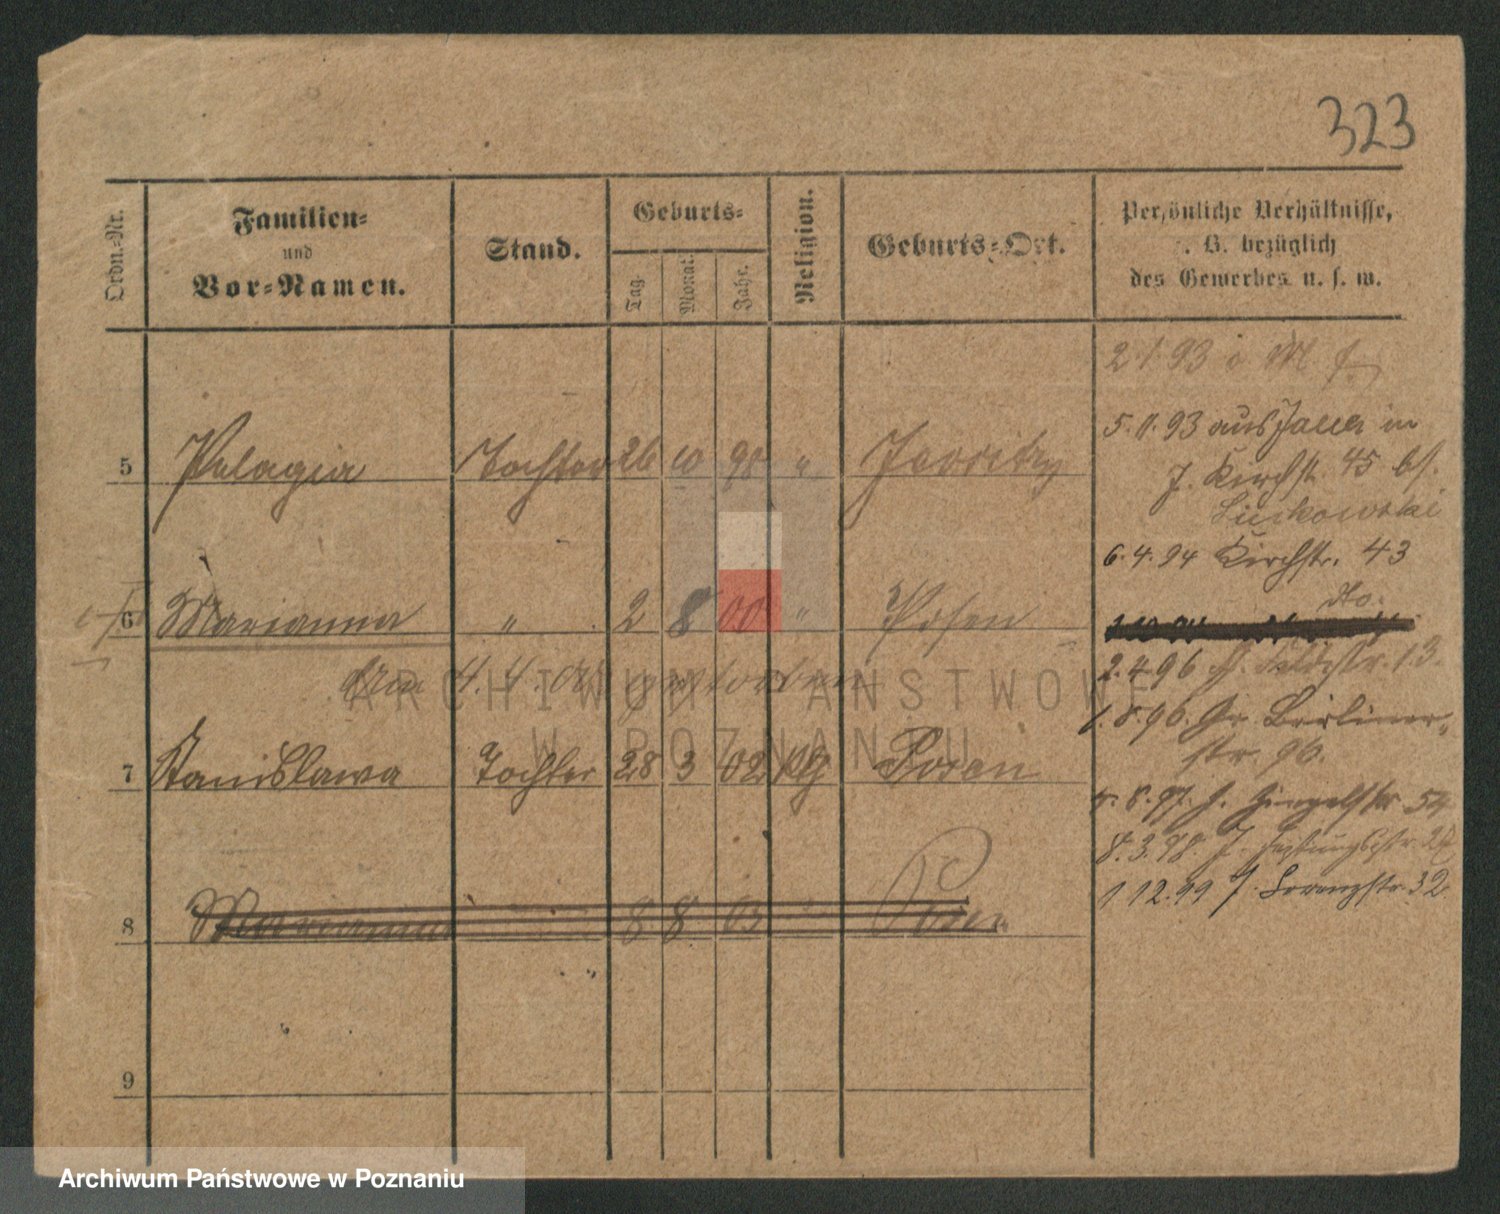 323
Ordn.-Nr.
Familien-
und
Vor-Namen.
Stand.
Geburts-
Tag.
Monat.
Jahr.
Religion.
Geburts-Ort.
Persönliche Verhältnisse,
. B. bezüglich
des Gewerbes u. s. w.
2 1. 93
5. 11. 93 aus Jauer in
J. Kirchst. 45 bs.
5 Pelagia Tochter 26 10 90 "
6. 4. 94 Kirchstr. 43
dto.
6 Marianna " 2 8 00 " Posen
2. 4. 96 Feldstr. 13.
4. 4. 01 gestorben
1. 8. 96. Gr. Berliner-
str. 96.
7 Stanislawa Tochter 28 3 02 kg Posen
4. 8. 97. 54
8. 3. 98. J. Festungsstr.
1 12. 99 J. Lorenzstr. 32
8 Marianna 8 8 03 Posen
9
ARCHIWUM PAŃSTWOWE
W POZNANIU
Archiwum Państwowe w Poznaniu